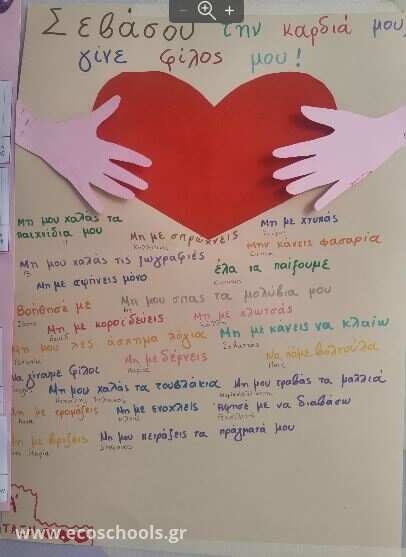 Σεβάσου την καρδιά μου,
γίνε φίλος μου!
Μη μου χαλάς τα
παιχνίδια μου
Μη με σπρώχνεις
Μη με χτυπάς
Μην κάνεις φασαρία
Μη μου χαλάς τις ζωγραφιές
έλα να παίξουμε
Μη με αφήνεις μόνο
Βοήθησέ με
Μη μου σπας τα μολύβια μου
Μη με κοροϊδεύεις
Μη με κλωτσάς
Μη με κάνεις να κλαίω
Μη μου λες άσχημα λόγια
Μη με δέρνεις
Να πάμε βολτούλα
Να γίνουμε φίλοι
Μη μου χαλάς τα τουβλάκια
Μη μου τραβάς τα μαλλιά
Μη με τρομάζεις
Μη με ενοχλείς
Άφησέ με να διαβάσω
Μη με βρίζεις
Μη μου πειράζεις τα πράγματά μου
www.ecoschools.gr